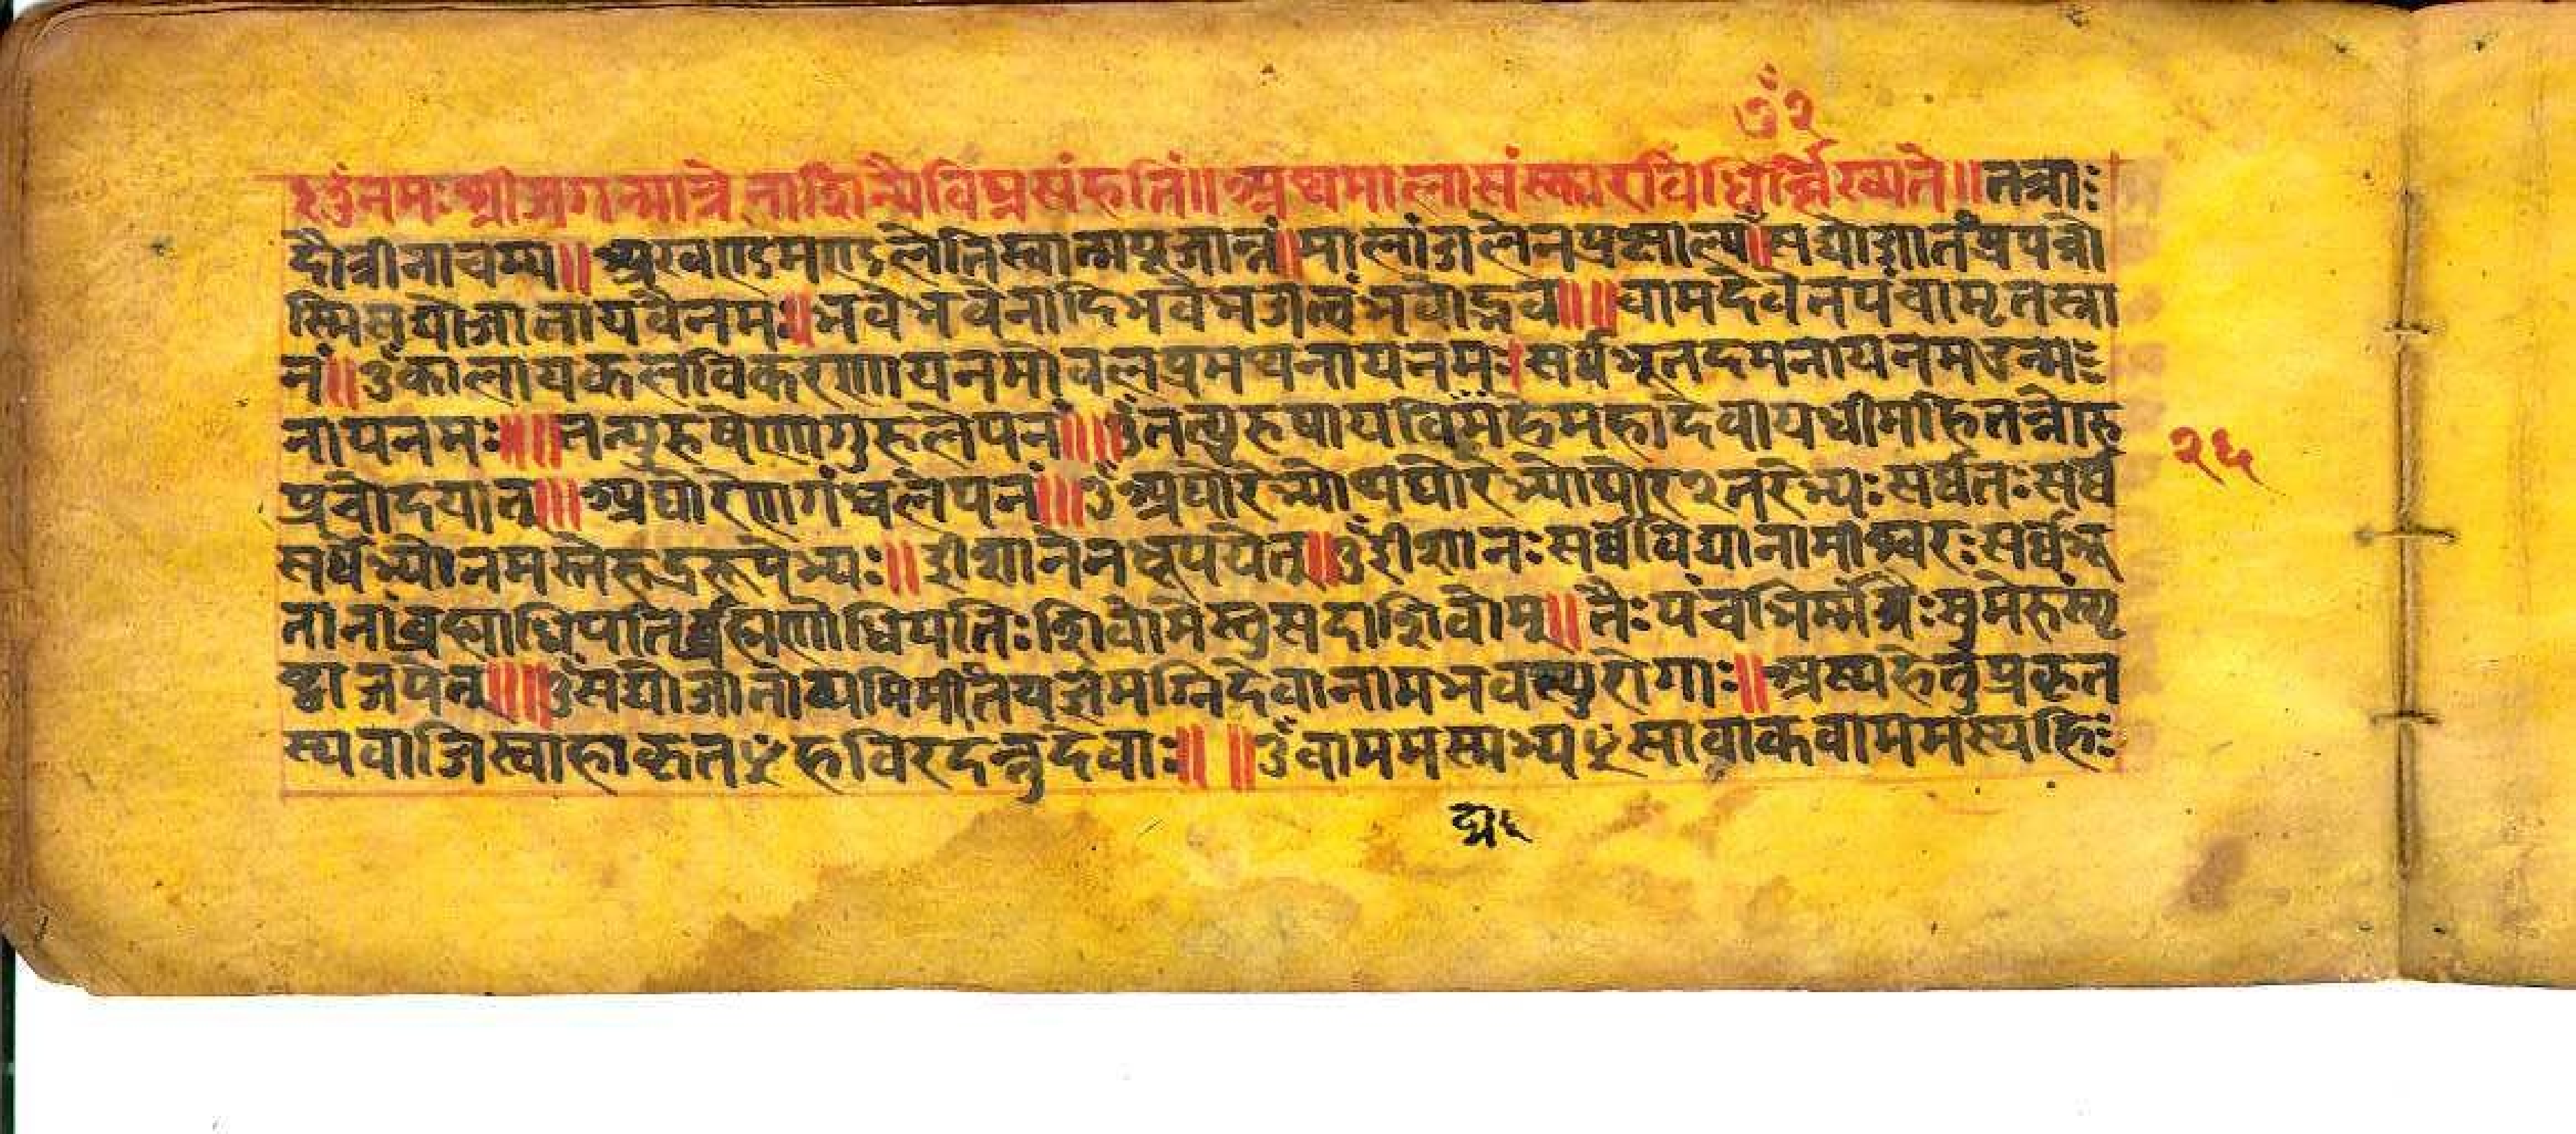 ॐ२
१ॐनमःश्रीजगन्मात्रेनाशिन्यैविघ्नसंहतिं॥अथमालासंस्कारविधिर्ल्लिख्यते॥तत्राः
दौत्रीनाचम्य॥अखण्डमण्डलेतिस्वात्मपूजान्नं।मालांजलेनप्रक्षाल्य॥सद्योजातंप्रपद्या
स्मिसद्योजातायवैनमः॥भवेभवेनादिभवेभजेत्वंभवोद्भव॥॥वामदेवेनपंचामृतस्ना
नं॥ॐकालायकलविकरणायनमोबलप्रमथनायनमः।सर्वभूतदमनायनमउन्मः
नायनमः॥॥तत्पुरुषेणागुरुलेपनं॥॥ॐतत्पुरुषायविद्महेमहादेवायधीमहितन्नोरु
प्रचोदयात्॥॥अघोरेणगंधलेपनं॥॥ॐअघोरेभ्योथघोरेभ्योघोर२तरेभ्यःसर्वतःसर्व
सर्वेभ्योनमस्तेरुद्ररूपेभ्यः॥ईशानेनधूपयेत्॥ॐईशानःसर्वविद्यानामीश्वरःसर्वभू
तानांब्रह्माधिपतिर्ब्रह्मणोधिपतिःशिवोमेस्तुसदाशिवोम्॥तैःपंचभिर्मंत्रैःसुमेरुंस्पृ
ष्ट्वाजपेत्॥॥ॐसद्योजातोव्यमिमीतयज्ञमग्निर्देवानामभवत्पुरोगाः॥अस्यहेतुप्रकृत
स्यवाजिस्वाहाकृतꣳहविरदन्तुदेवाः॥॥ॐवाममस्मभ्यꣳसावाकवाममस्यहिः
२६